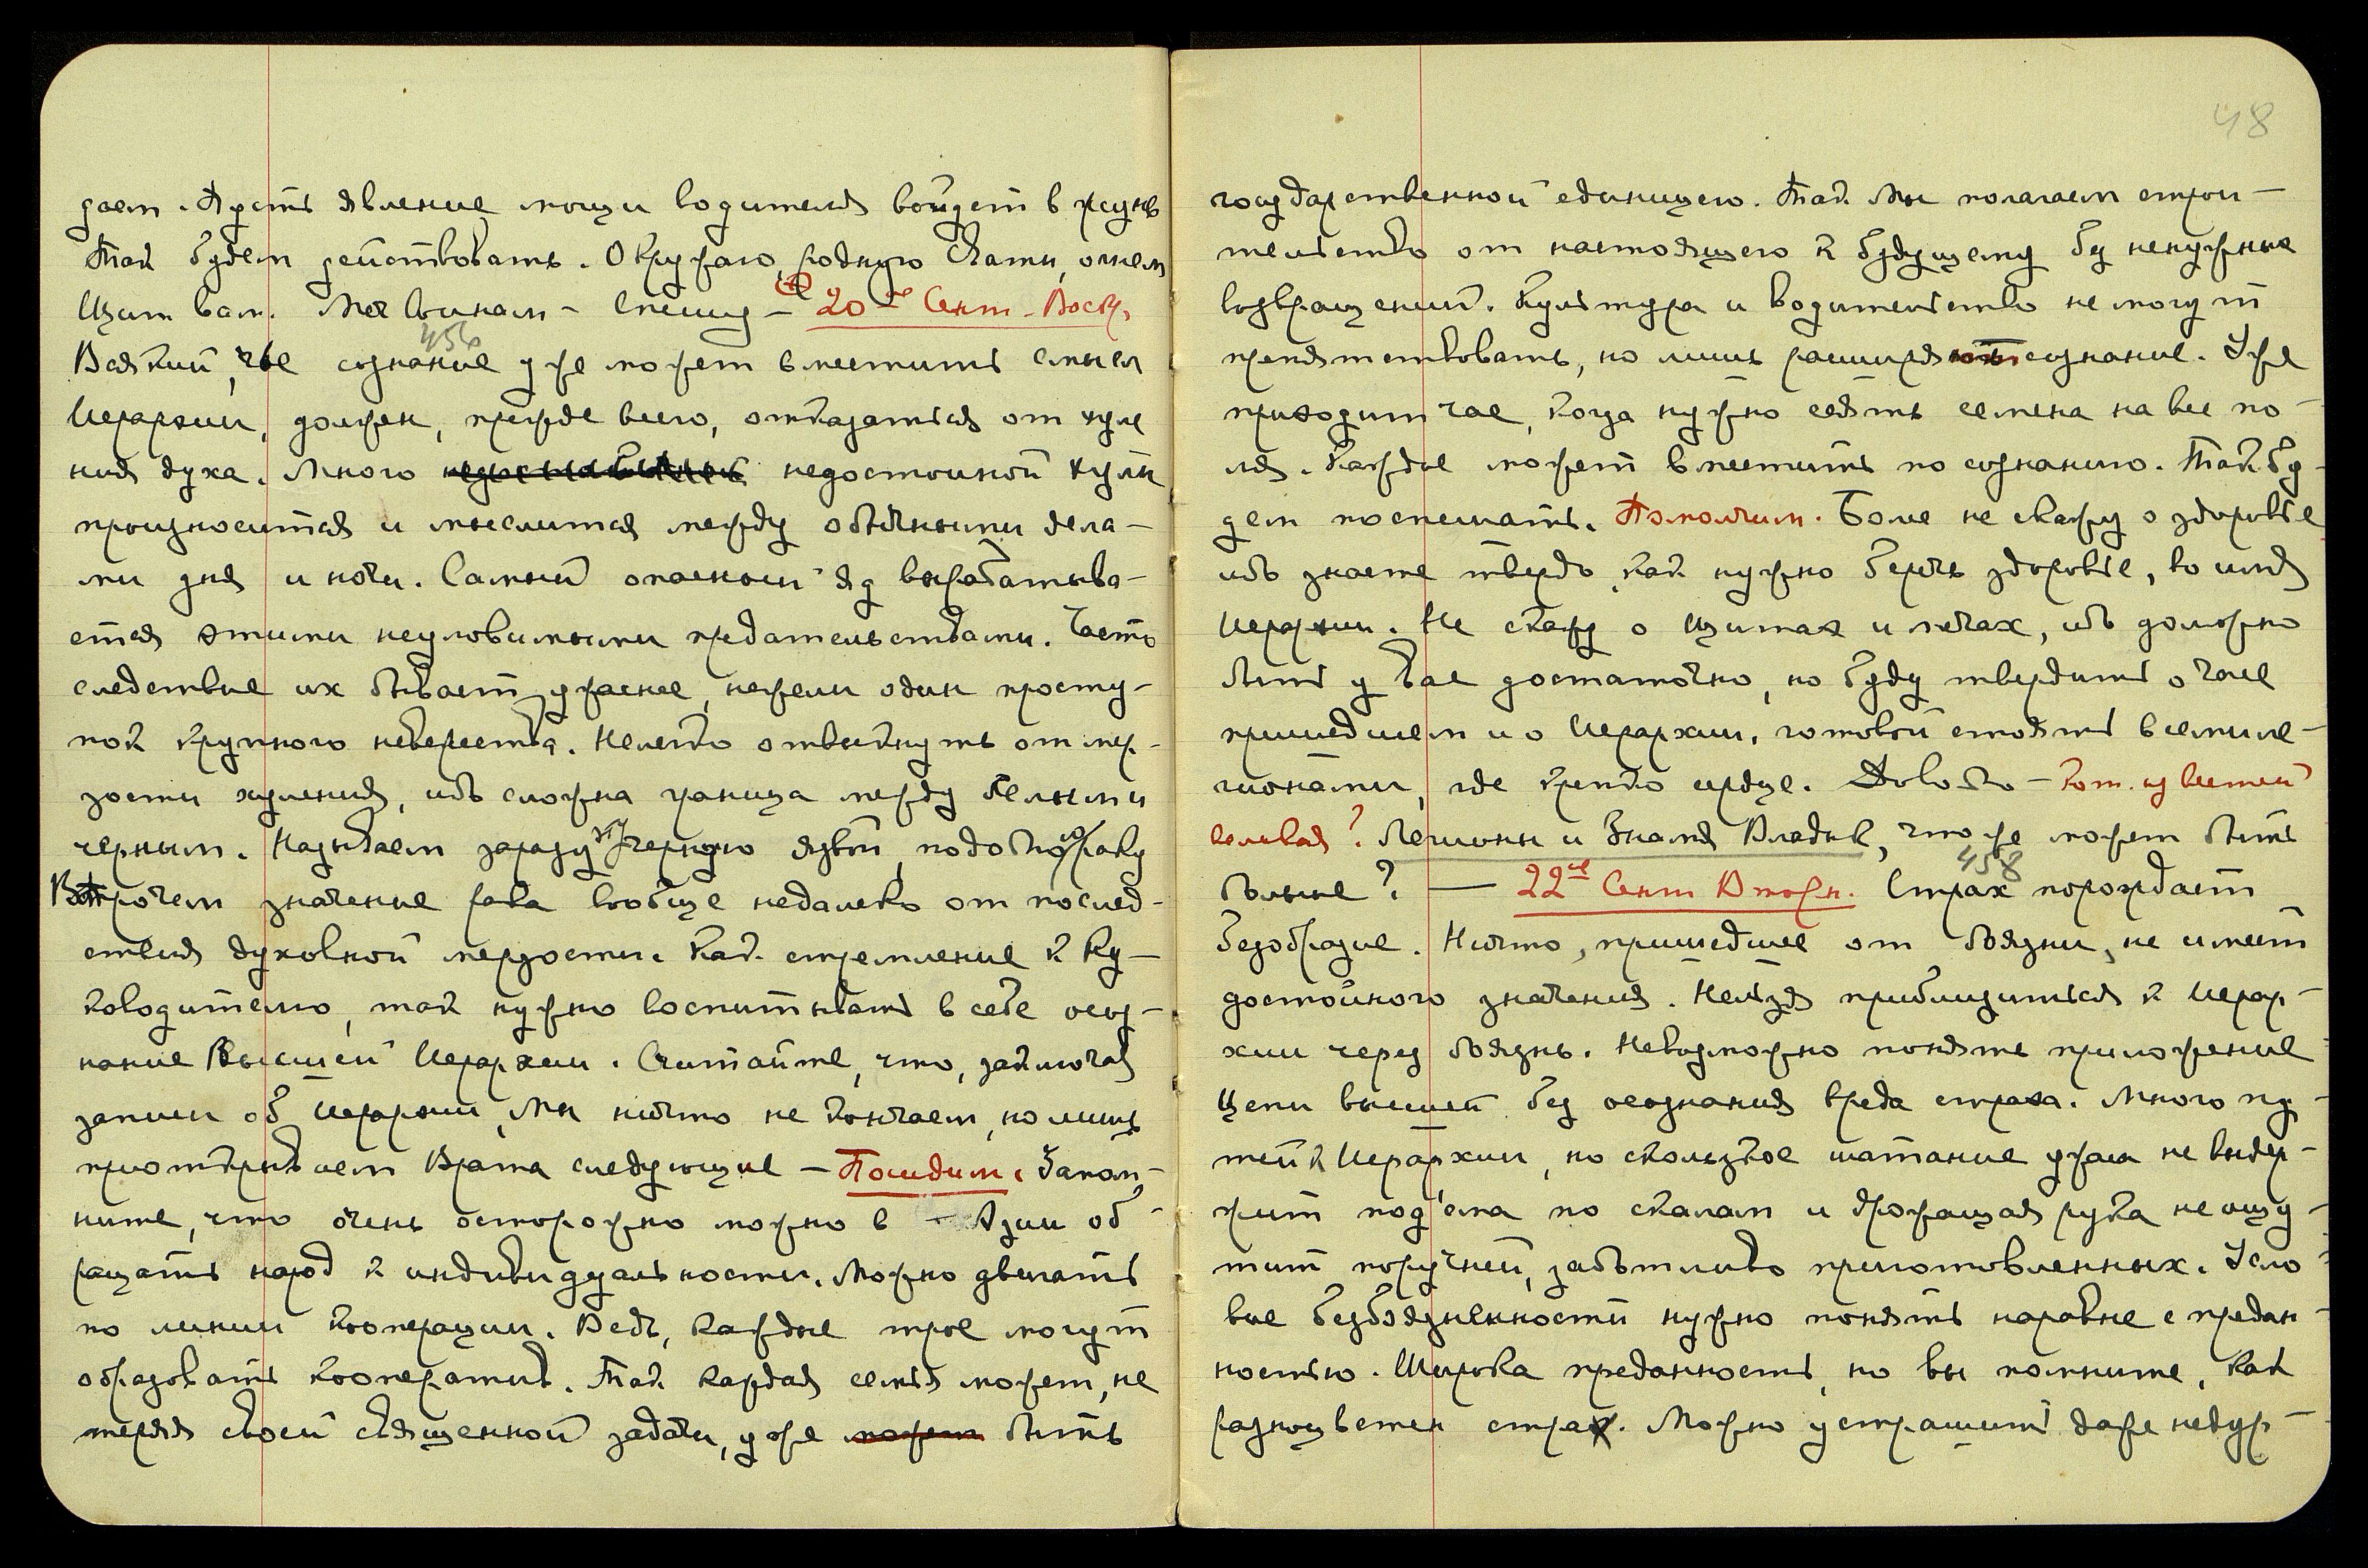 даем. Пусть явление мощи водителя войдет в жизнь
Так будем действовать. Окружаю, родную Свати, огнем
Щит вам. Меч воинам - Спешу - 20го Сент. Воскр.
456
Всякий, чье сознание уже может вместить смысл
Иерархии, должен, прежде всего, отказаться от хуле
ния духа. Много недостойной хулы
произносится и мыслится между обычными дела-
ми дня и ночи. Самый опасный яд вырабатыва-
ется этими неуловимыми предательствами. Часто
следствие их бывает ужаснее, нежели один просту-
пок крупного невежества. Нелегко отвыкнуть от мер-
зости хуления, ибо сложна граница между белым и
черным. Называем заразу эту черною язвой, подобно раку
Впрочем значение рака вообще недалеко от послед-
ствия духовной мерзости. Как стремление к Ру-
ководителю, так нужно воспитывать в себе осоз-
нание Высшей Иерархии. Считайте, что, заключая
записи об Иерархии, Мы ничто не кончаем, но лишь
приоткрываем Врата следующие - Посидим. Запом-
ните, что очень осторожно можно в - Азии об-
ращать народ к индивидуальности. Можно двигать
по линии кооперации. Ведь, каждые трое могут
образовать кооператив. Так каждая семья может, не
теряя своей священной задачи, уже может быть
48
государственной единицею. Так Мы полагаем строи-
тельство от настоящего к будущему без ненужных
возвращений. Культура и водительство не могут
препятствовать, но лишь расширяют сознание. Уже
приходит час, когда нужно сеять семена на все по-
ля. Каждое может вместить по сознанию. Так бу-
дем поспешать. Помолчим. Более не скажу о здоровье
ибо знаете твердо, как нужно беречь здоровье, во имя
Иерархии. Не скажу о щитах и мечах, ибо должно
быть у вас достаточно, но буду твердить о часе
пришедшем и о Иерархии, готовой стоять всеми ле-
гионами, где крепко сердце. Довольно -
Легионы и Знамя Владык, что же может быть
больше? — 22го Сент Вторн. Страх порождает
458
безобразие. Ничто, пришедшее от боязни, не имеет
достойного значения. Нельзя приблизиться к Иерар-
хии через боязнь. Невозможно понять приложение
Цепи высшей без осознания вреда страха. Много пу-
тей к Иерархии, но скользкое шатание ужаса не выдер-
жит под'ема по скалам и дрожащая рука не ощу-
тит поручней, заботливо приготовленных. Усло-
вие безбоязненности нужно понять наравне с предан-
ностью. Широка преданность, но вы помните, как
разноцветен страх. Можно устрашить даже недур-